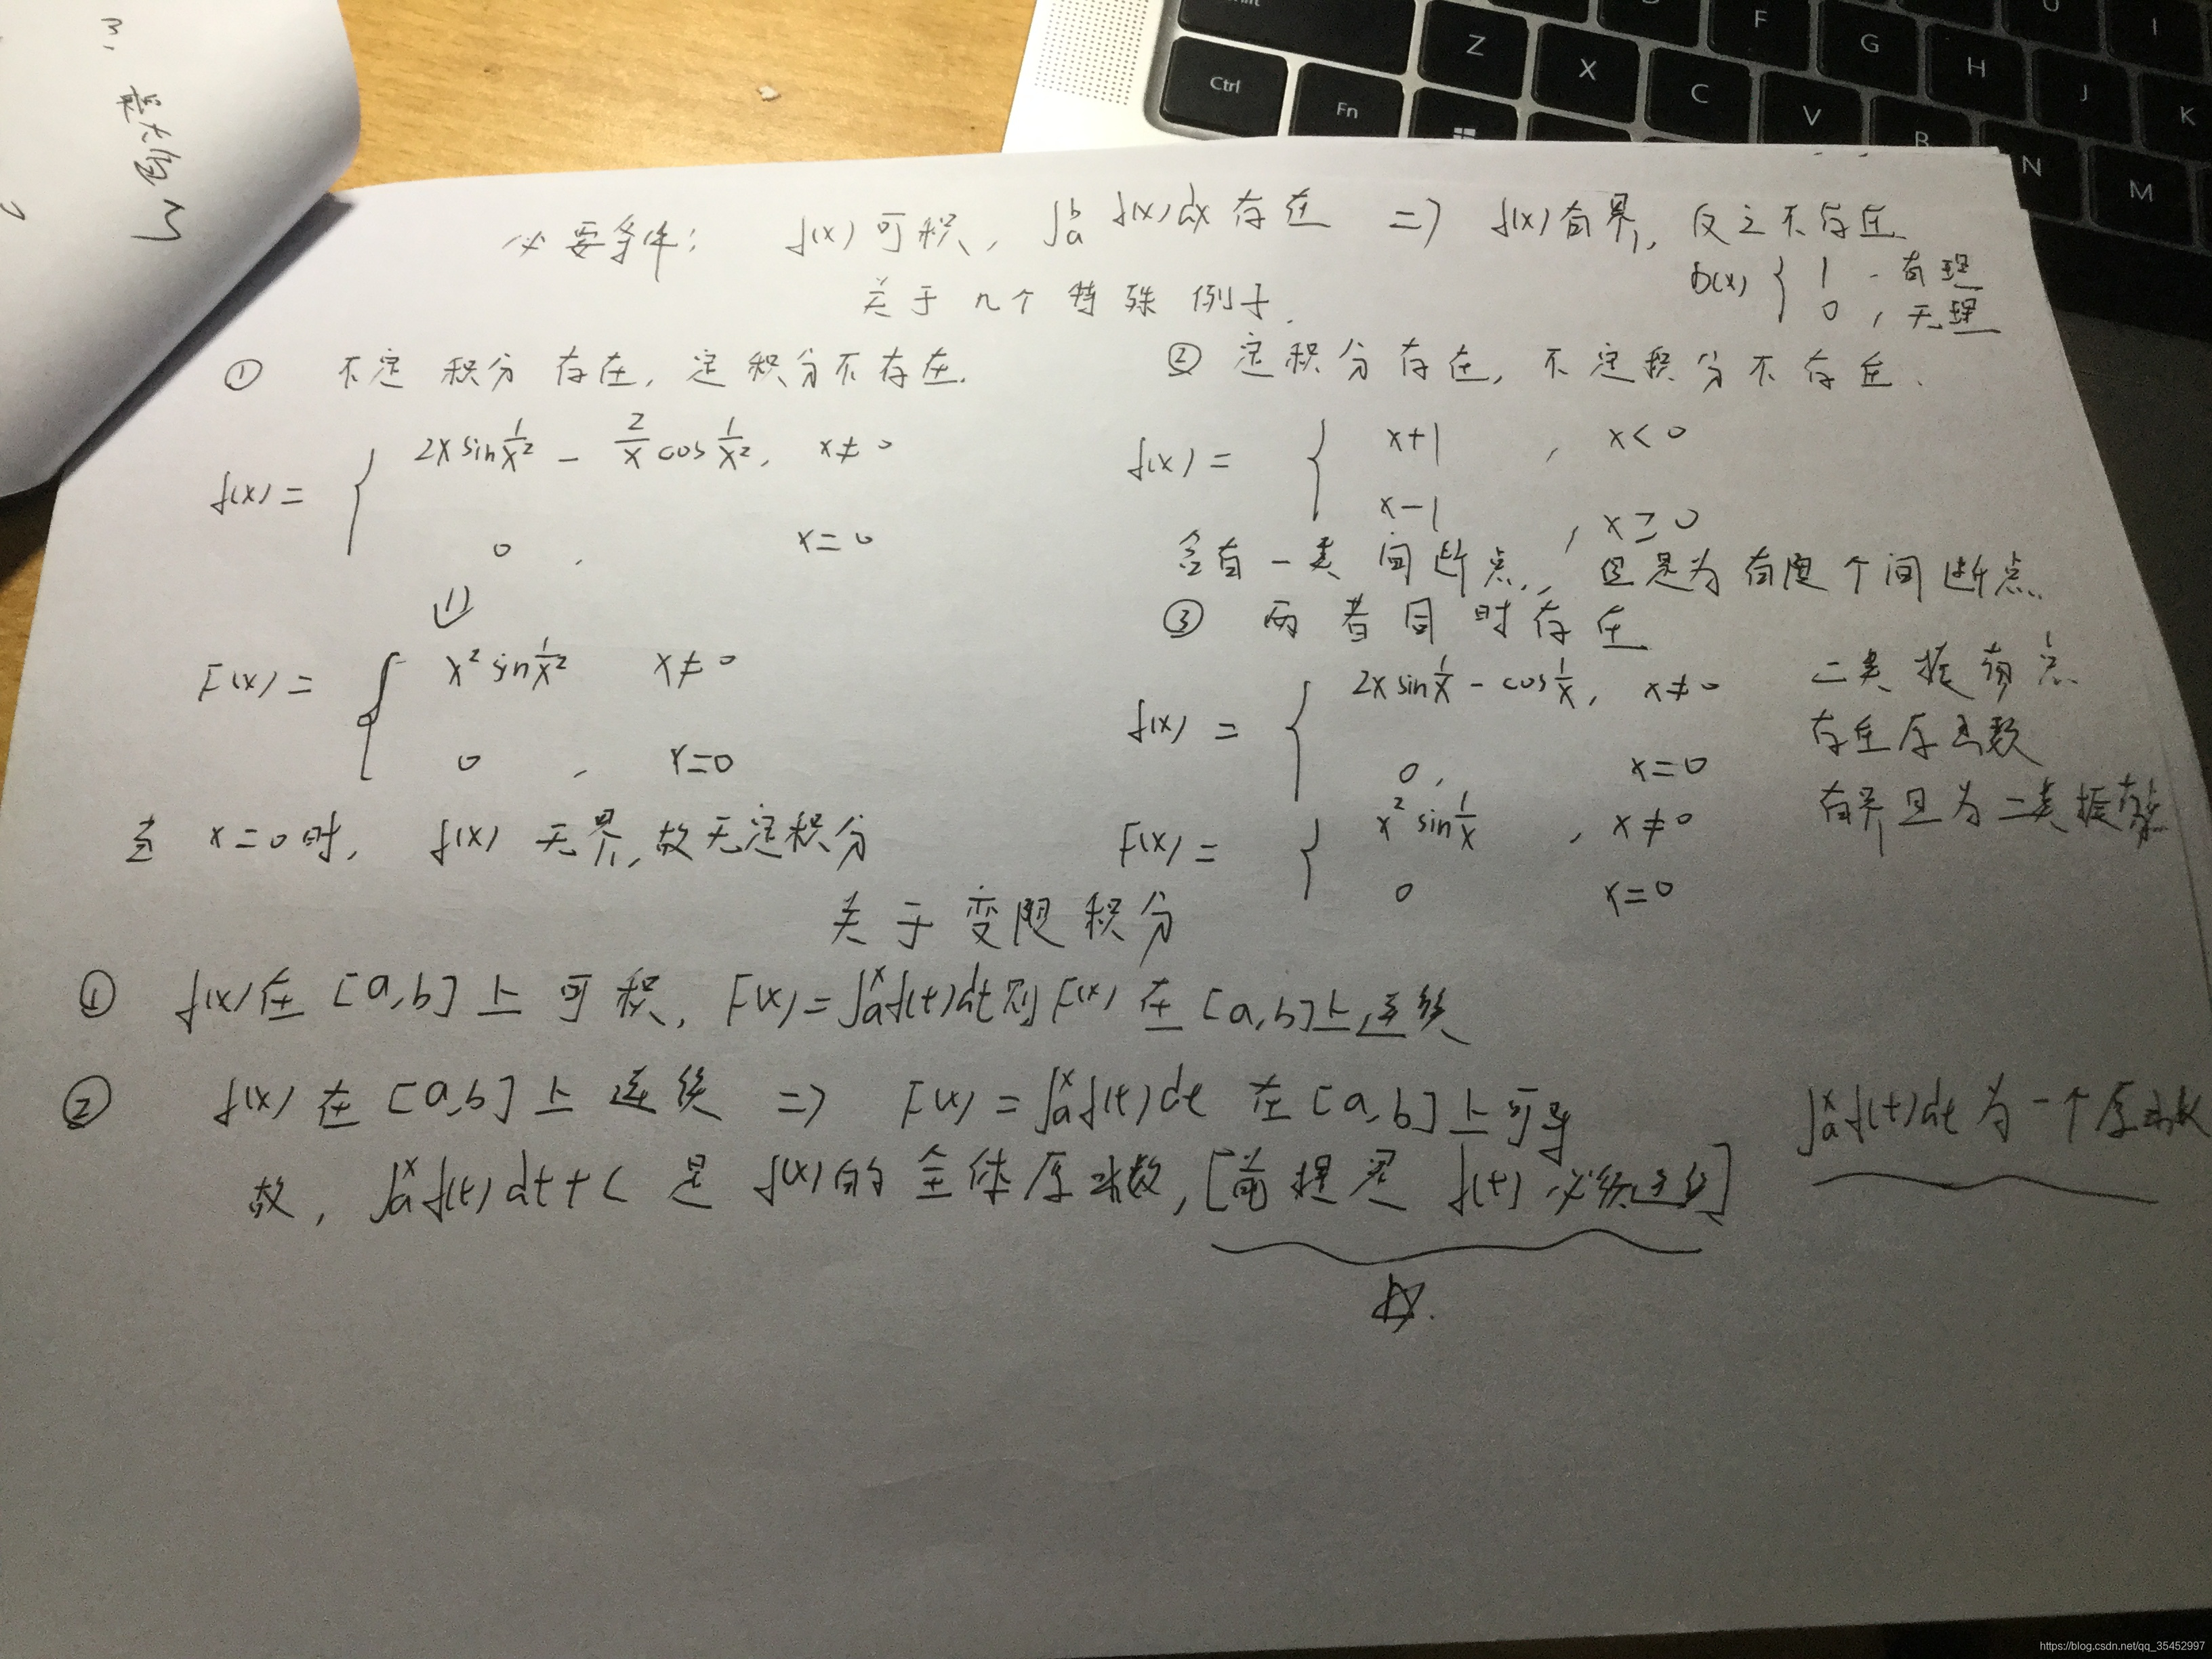 3、最大值M
必要条件: f(x)可积, ∫ₐᵇ f(x)dx 存在 => f(x)有界, 反之不存在
D(x) { 1 , 有理
0 , 无理
关于几个特殊例子.
① 不定积分存在, 定积分不存在.
f(x) = { 2x sin 1/x² - 2/x cos 1/x², x≠0
0 , x=0
⇓
F(x) = { x² sin 1/x² x≠0
0 , x=0
当 x=0时, f(x) 无界, 故无定积分
② 定积分存在, 不定积分不存在.
f(x) = { x+1 , x<0
x-1 , x≥0
含有一类间断点, 但是为有限个间断点.
③ 两者同时存在
f(x) = { 2x sin 1/x - cos 1/x, x≠0
0, x=0
F(x) = { x² sin 1/x , x≠0
0 x=0
二类振荡点
存在原函数
有界且为二类振荡
关于变限积分
① f(x)在[a,b]上可积, F(x)=∫ₐˣf(t)dt则F(x)在[a,b]上连续
② f(x)在[a,b]上连续 => F(x)=∫ₐˣf(t)dt 在[a,b]上可导
∫ₐˣf(t)dt为一个原函数
故, ∫ₐˣf(t)dt+C 是 f(x)的全体原函数, [前提是 f(t)必须连续]
☆.
Shift Z X C V B N M
F G H J K
U I
Ctrl Fn
https://blog.csdn.net/qq_35452997